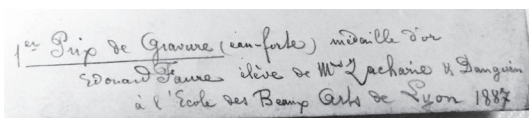 1er Prix de Gravure (eau-forte) médaille d'or
Edouard Faure élève de Mrs Zacharie & Danguin
à l'Ecole des Beaux Arts de Lyon 1887